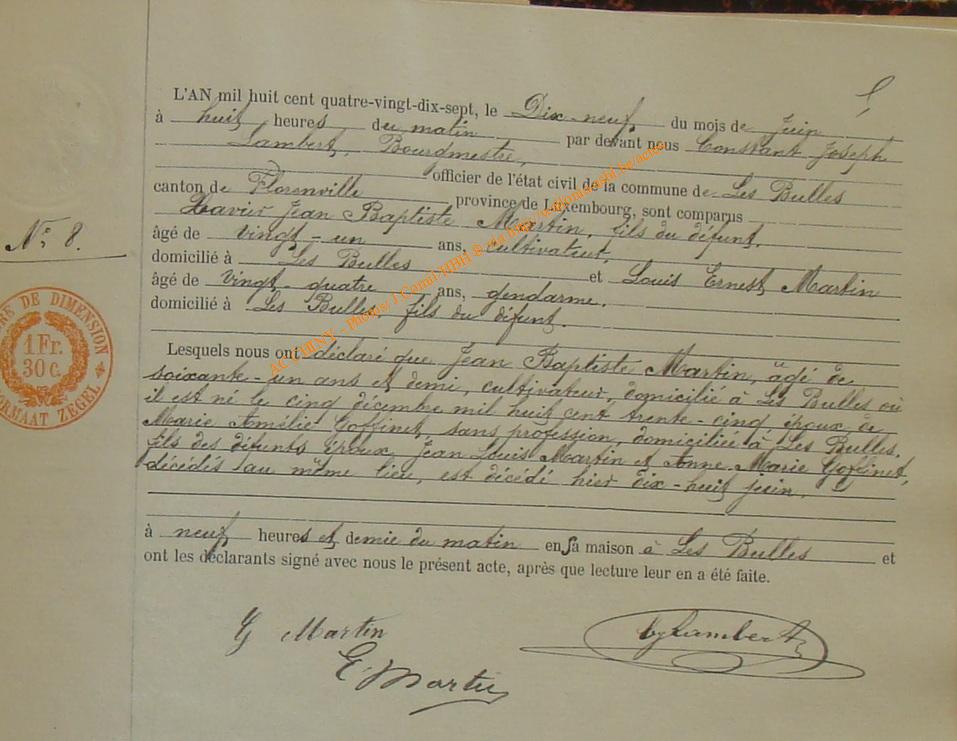 L'AN mil huit cent quatre-vingt-dix-sept, le Dix-neuf du mois de Juin
à huit heures du matin par devant nous Constant Joseph
Lambert, Bourgmestre,
officier de l'état civil de la commune de Les Bulles
canton de Florenville province de Luxembourg, sont comparus
Xavier Jean Baptiste Martin, fils du défunt.
âgé de vingt-un ans, cultivateur,
N° 8.
domicilié à Les Bulles et Louis Ernest Martin
âgé de vingt-quatre ans, gendarme.
domicilié à Les Bulles, fils du défunt.
Lesquels nous ont déclaré que Jean Baptiste Martin, âgé de
soixante-un ans et demi, cultivateur, domicilié à Les Bulles où
il est né le cinq décembre mil huit cent trente-cinq, époux de
Marie Amélie Goffinet, sans profession, domiciliée à Les Bulles.
fils des défunts époux Jean Louis Martin et Anne-Marie Goffinet,
décédés au même lieu, est décédé hier dix-huit juin.
à neuf heures et demie du matin en sa maison à Les Bulles et
ont les déclarants signé avec nous le présent acte, après que lecture leur en a été faite.
Martin
E. Martin
Lambert
DE DIMENSION
1 Fr.
30 C.
FORMAAT ZEGEL